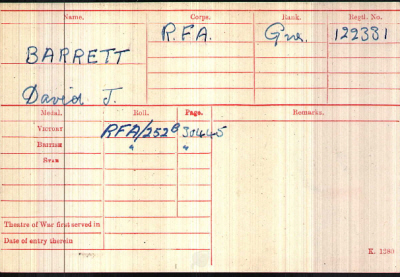 Name. Corps. Rank. Regtl. No.
BARRETT R.F.A. Gnr. 122381
David J.
Medal. Roll. Page. Remarks.
VICTORY RFA/252B 30445
BRITISH " "
STAR
Theatre of War first served in
Date of entry therein
K. 1380